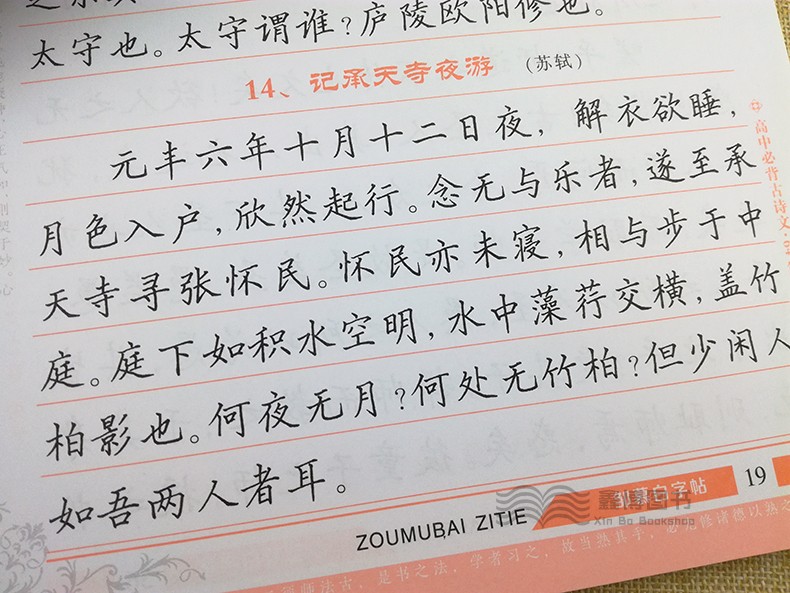 太守也。太守谓谁？庐陵欧阳修也。
14、记承天寺夜游 (苏轼)
元丰六年十月十二日夜，解衣欲睡，
月色入户，欣然起行。念无与乐者，遂至承
天寺寻张怀民。怀民亦未寝，相与步于中
庭。庭下如积水空明，水中藻荇交横，盖竹
柏影也。何夜无月？何处无竹柏？但少闲人
如吾两人者耳。
高中必背古诗文
ZOUMUBAI ZITIE
邹慕白字帖 19
鑫博图书
Xin Bo Bookshop
师法古，是书之法，学者习之，故当熟其手，必先修诸德以熟之